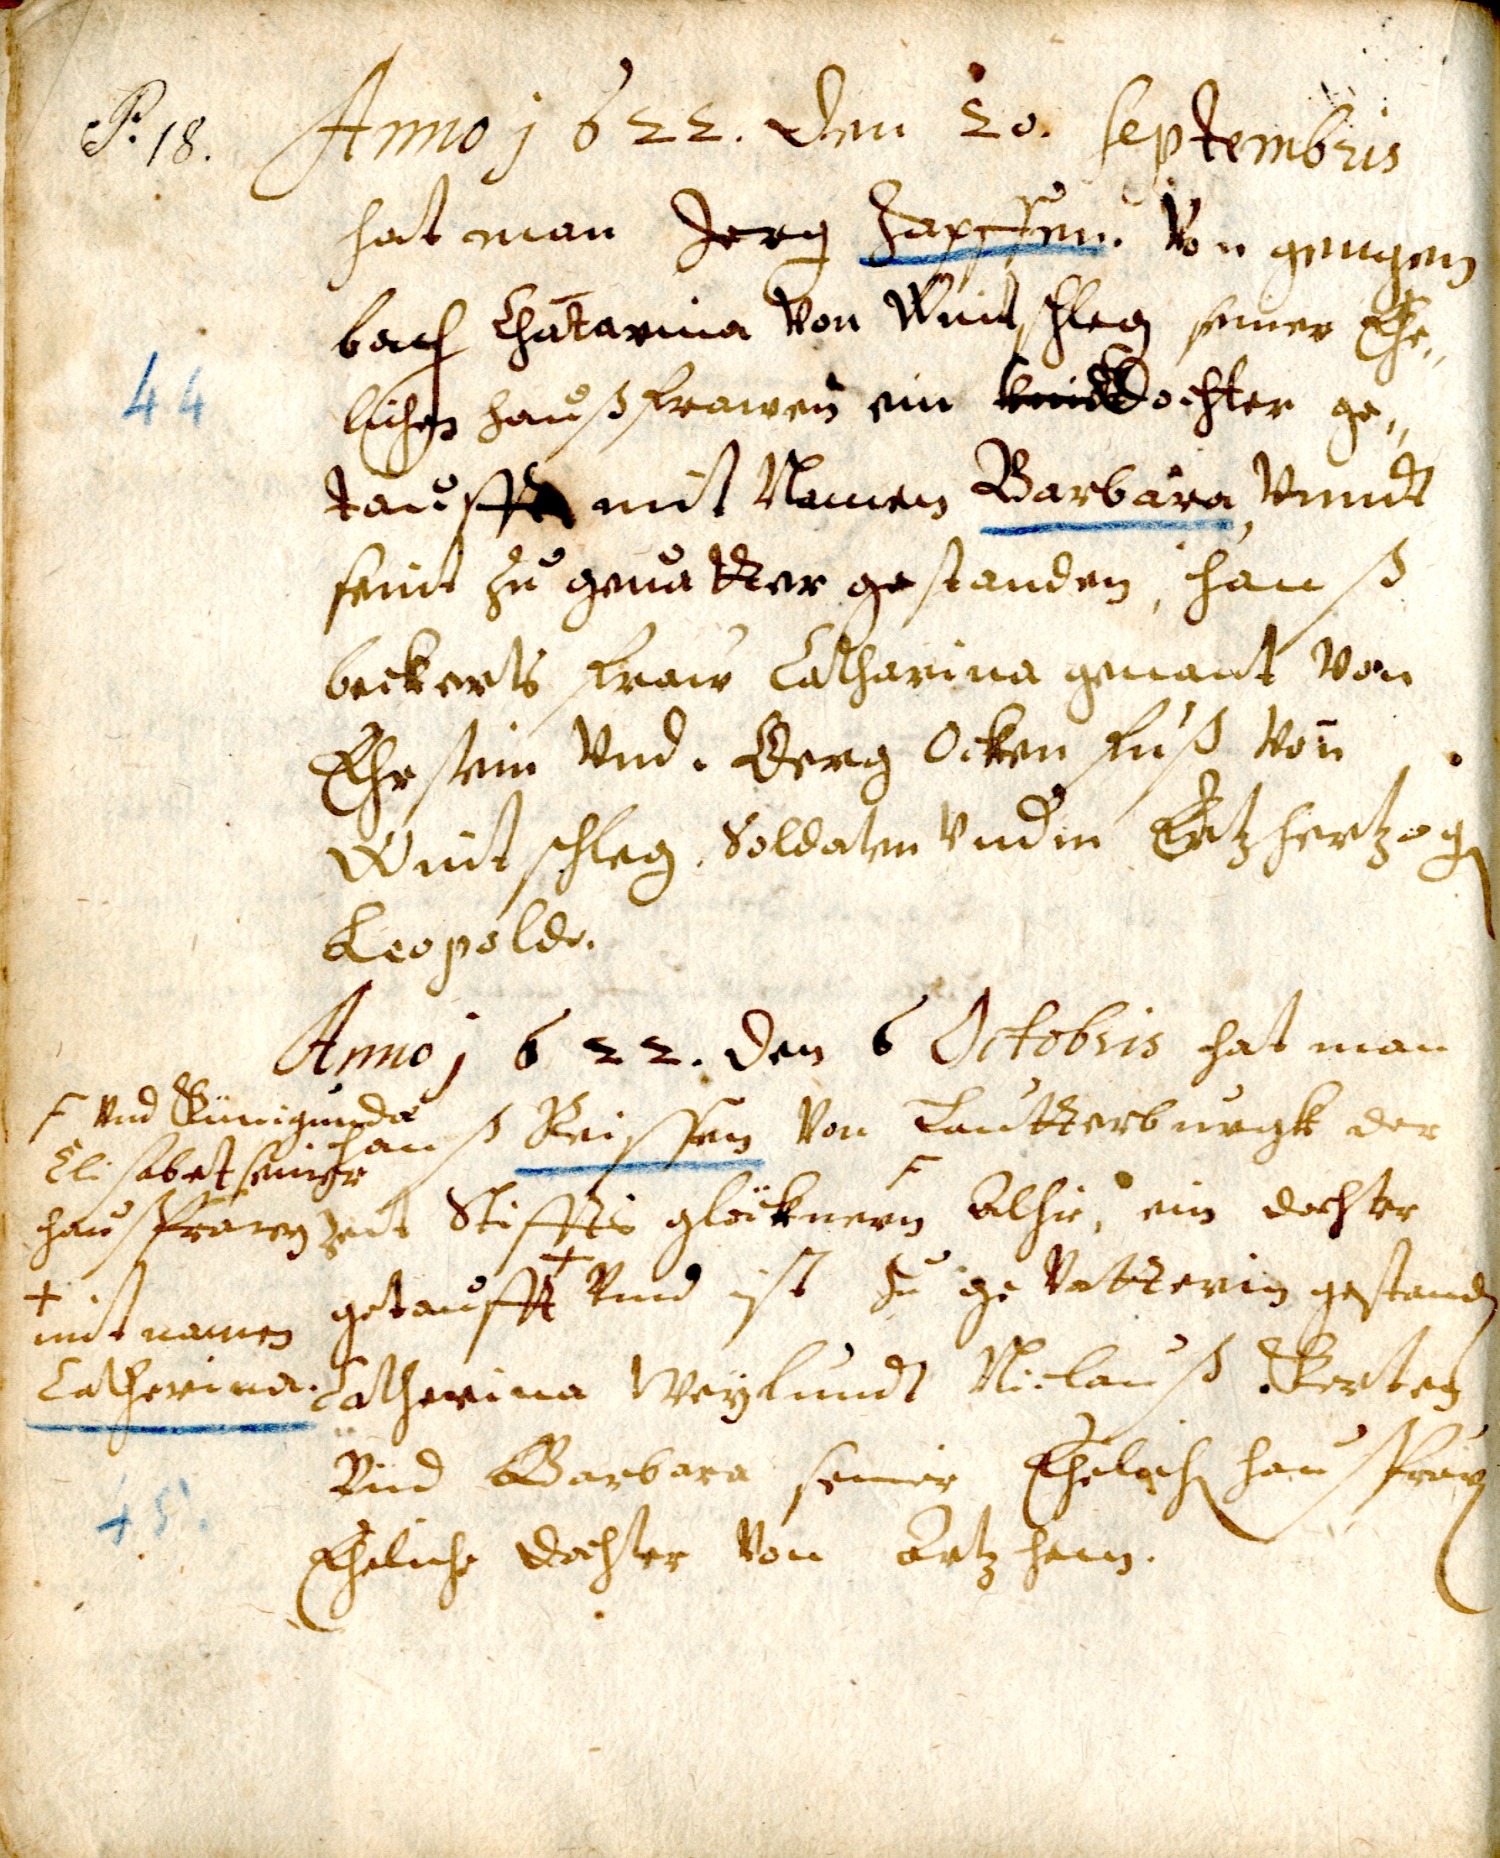 P. 18.
Anno 1622. den 20. Septembris
hat man Jerg Zapffen. Von gengen
bach Chatarina Von Wintschleg seiner Ehe„
lichen haußfrawen ein dochter ge„
taufft mit Namen Barbara, Vnndt
seint zu gevatter gestanden, hanß
beckerts fraw Catharina genant Von
Ehrstein Vnd. Georg Ockenfuß Von
Wintschleg. Soldaten Vnder Ertzhertzog
Leopolde.
44
Anno 1622. den 6 Octobris hat man
hanß Reissen Von Lautterburgk der
zeit Stiffts glöcknern F Alhie, ein dochter
getaufft + Vnd ist zu geVatterin gestanden
Catherina Weylundt Niclauß Kerten
Vnd Barbara seiner Ehelich hausfraw
Eheliche dochter Von Artzhem.
F Vnd Künigunda
Elisabet seiner
hausfrawen
+
mit namen
Catherina.
45.